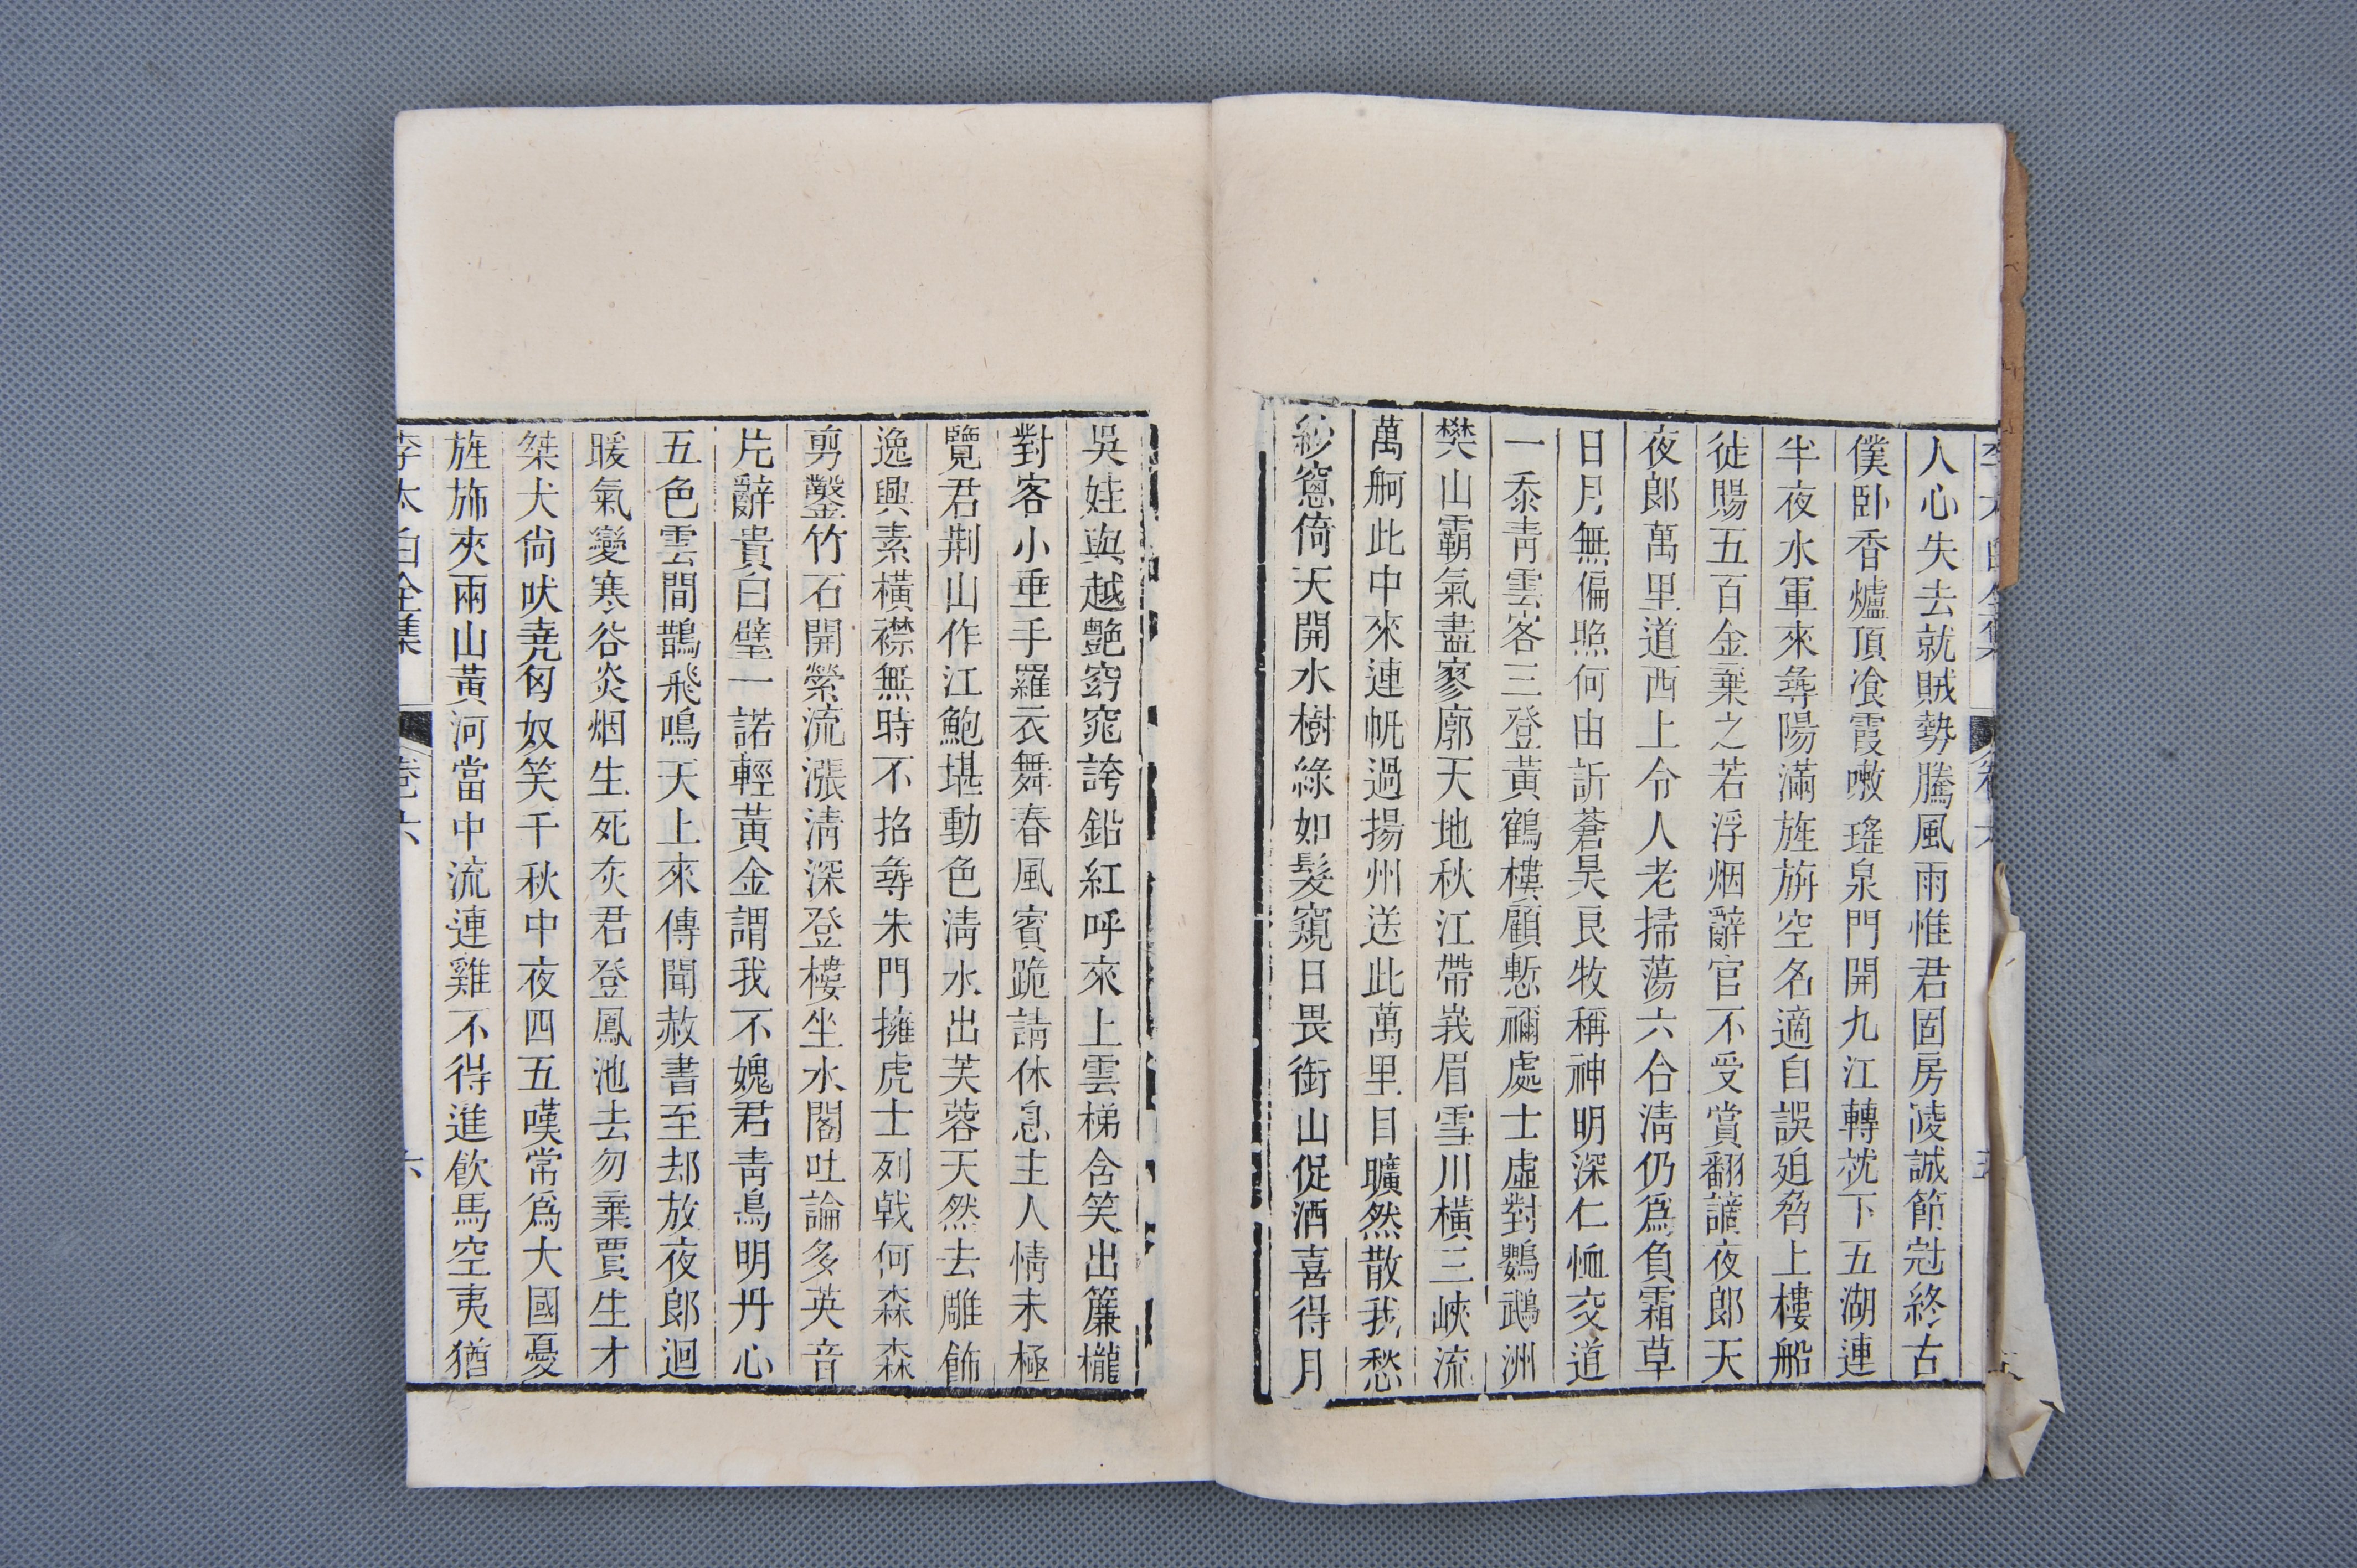 人心失去就賊勢騰風雨惟君固房陵誠節冠終古
僕臥香爐頂飡霞嗽瑤泉門開九江轉枕下五湖連
半夜水軍來尋陽滿旌旃空名適自誤廹脅上樓船
徒賜五百金棄之若浮烟辭官不受賞翻謫夜郎天
夜郎萬里道西上令人老掃蕩六合淸仍爲負霜草
日月無偏照何由訴蒼昊良牧稱神明深仁恤交道
一忝靑雲客三登黃鶴樓顧慙禰處士虛對鸚鵡洲
樊山霸氣盡寥廓天地秋江帶峩眉雪川橫三峽流
萬舸此中來連帆過揚州送此萬里目曠然散我愁
紗窻倚天開水樹綠如髮窺日畏銜山促酒喜得月
吳娃與越艷窈窕誇鉛紅呼來上雲梯含笑出簾櫳
對客小垂手羅衣舞春風賓跪請休息主人情未極
覽君荆山作江鮑堪動色淸水出芙蓉天然去雕飾
逸興素橫襟無時不招尋朱門擁虎士列戟何森森
剪鑿竹石開縈流漲淸深登樓坐水閣吐論多英音
片辭貴白璧一諾輕黃金謂我不媿君靑鳥明丹心
五色雲間鵲飛鳴天上來傳聞赦書至却放夜郎迴
暖氣變寒谷炎烟生死灰君登鳳池去勿棄賈生才
桀犬尙吠堯匈奴笑千秋中夜四五嘆常爲大國憂
旌斾夾兩山黃河當中流連雞不得進飮馬空夷猶
李太白全集 卷六 六